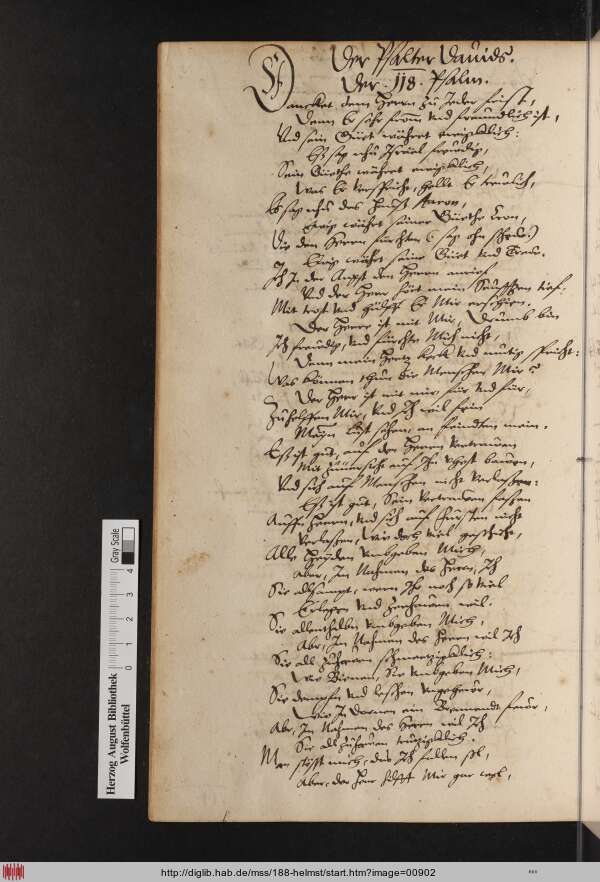 Der Psalter Dauids.
Der 118. Psalm.
Dancket dem Herrn zu Jeder frist,
Dann Er sehr from vnd freundtlich ist,
Vnd sein Güet währet ewigklich:
Es sag nhu Israel freudig,
Sein Güethe währet ewigklich,
Was Er verspricht, hellt Er treulich,
Es sag nhu des Hauß Aaron,
Ewig währt seiner Güethe
Die den Herrn fürchten sag ohn
Ewig währt seine Güet vnd Trew.
Ich In der Angst den Herrn anrieff
Vnd der Herr hört mein Seufftzen tief:
Mit trost vnd hülff Er Mir erschien.
Der Herr ist mit Mir, Drumb bin
Ich freudig, vnd fürchte Mich nicht,
Dann mein Hertz keck vnd mutig spricht:
Was können thun die Menschen Mir?
Der Herr ist mit mir, für vnd für,
Zu helffen Mir, vnd Ich wil fein
Mein lust sehen, an feindten mein.
Es ist gut, auf den Herrn vertrauen
Mit zuuersicht auf Ihn bauen,
Vnd sich auf Menschen nicht verlaßen:
Es ist gut, Sein vertrauen faßen
Auffn Herrn, vnd sich auf Fürsten nicht
Verlaßen, wie doch viel geschicht,
Alle Heyden vmbgeben Mich,
Aber, In Nahmen des Herrn, Ich
Sie allsampt, wenn Ihr noch so viel
Erlegen vnd zerhauen wil.
Sie allenthalben vmbgeben Mich,
Aber, In Nahmen des Herrn wil Ich
Sie all zuhauen schmertzigklich:
Wie Bienen, Sie vmbgeben Mich,
Sie dempfen vnd leschen vngeheür,
Wie In dornen ein Brennendt feuer,
Aber, In Nahmen des Herrn wil Ich
Sie all zuhauen
Man stößt mich, das Ich fallen sol,
Aber, der Herr hilfft Mir gar wol,
Herzog August Bibliothek
Wolfenbüttel
Gray Scale
0 1 2 3 4
http://diglib.hab.de/mss/188-helmst/start.htm?image=00902